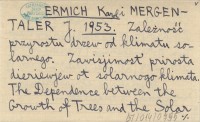 ERMICH Karol i MERGEN-
TALER J. 1953. Zależność
przyrostu drzew od klimatu so-
larnego. Zavisjimost prirosta
dieriewjew ot solarnogo klimata.
The Dependence between the
Growth of Trees and the Solar